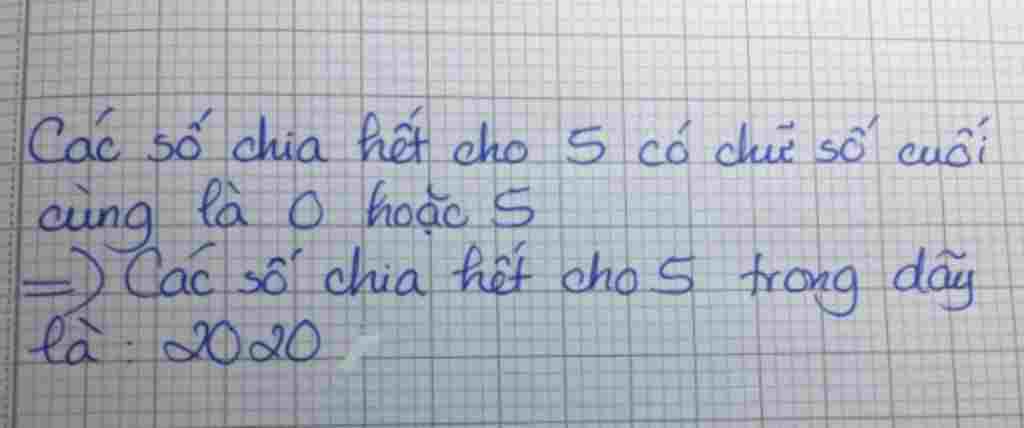 Các số chia hết cho 5 có chữ số cuối
cùng là 0 hoặc 5
=) Các số chia hết cho 5 trong dãy
là : 2020